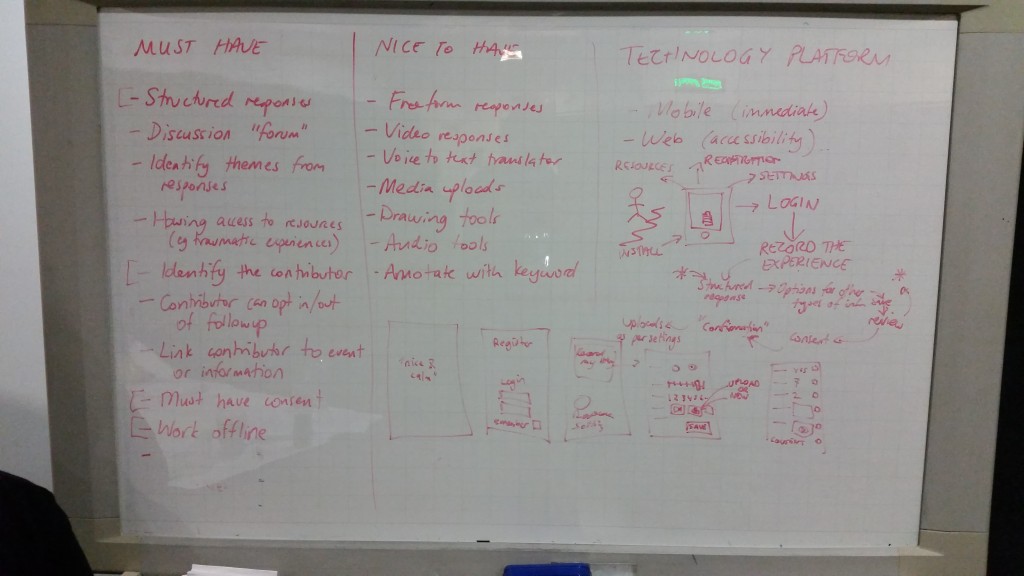 MUST HAVE
- Structured responses
- Discussion "forum"
- Identify themes from
responses
- Having access to resources
(eg traumatic experiences)
- Identify the contributor
- Contributor can opt in/out
of followup
- Link contributor to event
or information
- Must have consent
- Work offline
-
NICE TO HAVE
- Freeform responses
- Video responses
- Voice to text translator
- Media uploads
- Drawing tools
- Audio tools
- Annotate with keyword
TECHNOLOGY PLATFORM
- Mobile (immediate)
- Web (accessibility)
RESOURCES
REGISTRATION
SETTINGS
LOGIN
INSTALL
RECORD THE
EXPERIENCE
* Structured
response
Options for other
types of
*
review
Consent
"Confirmation"
uploads
per settings
"nice &
calm"
Register
Login
remember
Record
my story
UPLOAD
OR
NEW
123456
OK
SAVE
YES
3
2